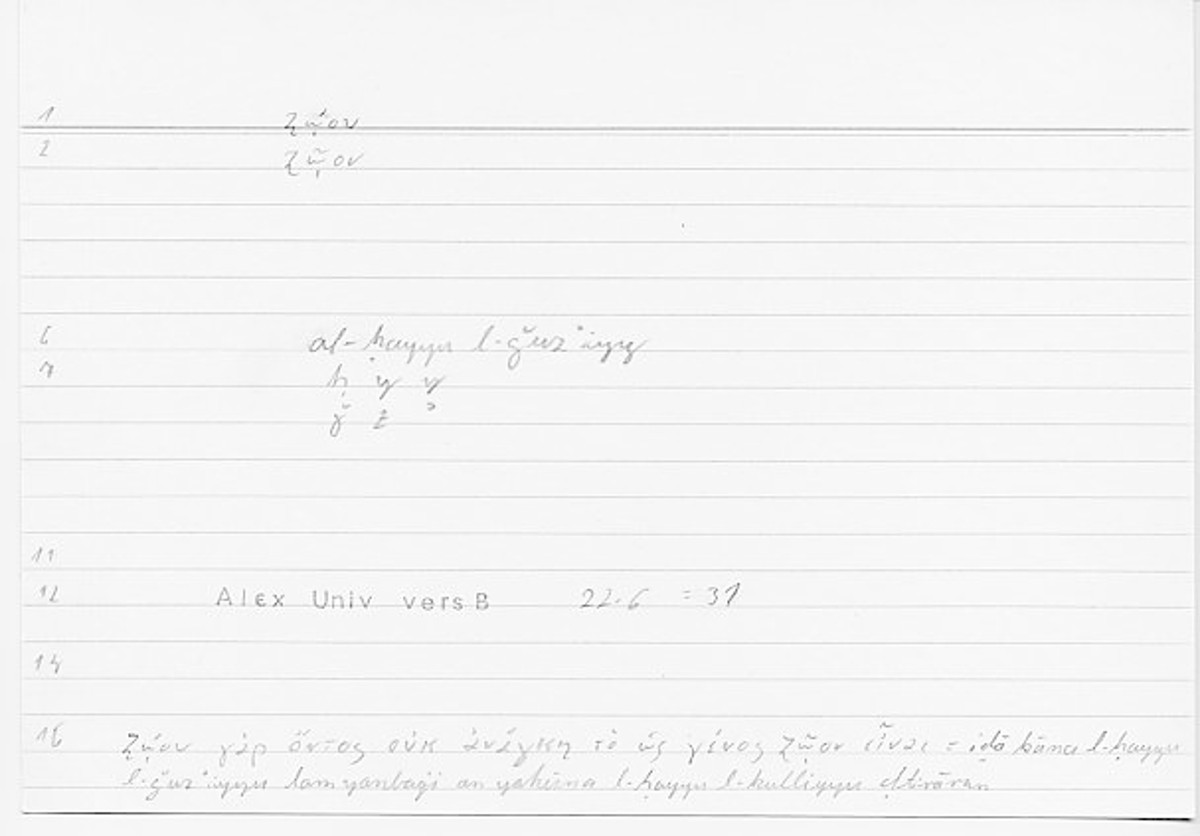 1 ζῴου
2 ζῷον
6 al-ḥayyu l-ǧuzʾiyy
7 ḥ y y
ǧ z ʾ
11
12 Alex Univ vers B 22.6 = 31
14
16 ζῴου γὰρ ὄντος οὐκ ἀνάγκη τὸ ὡς γένος ζῷον εἶναι = iḏā kāna l-ḥayyu
l-ǧuzʾiyyu lam yanbaġi an yakūna l-ḥayyu l-kulliyyu ḍṭirāran